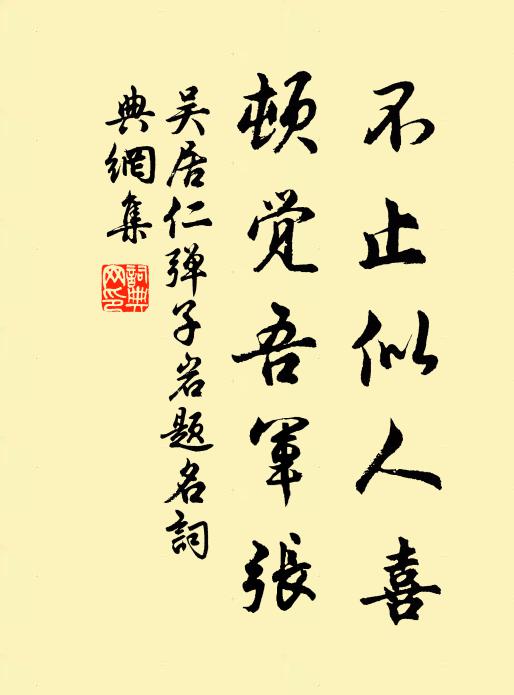 不止似人喜
顿觉吾军張
吴居仁弹子岩题名詞
典網集
詞典网印